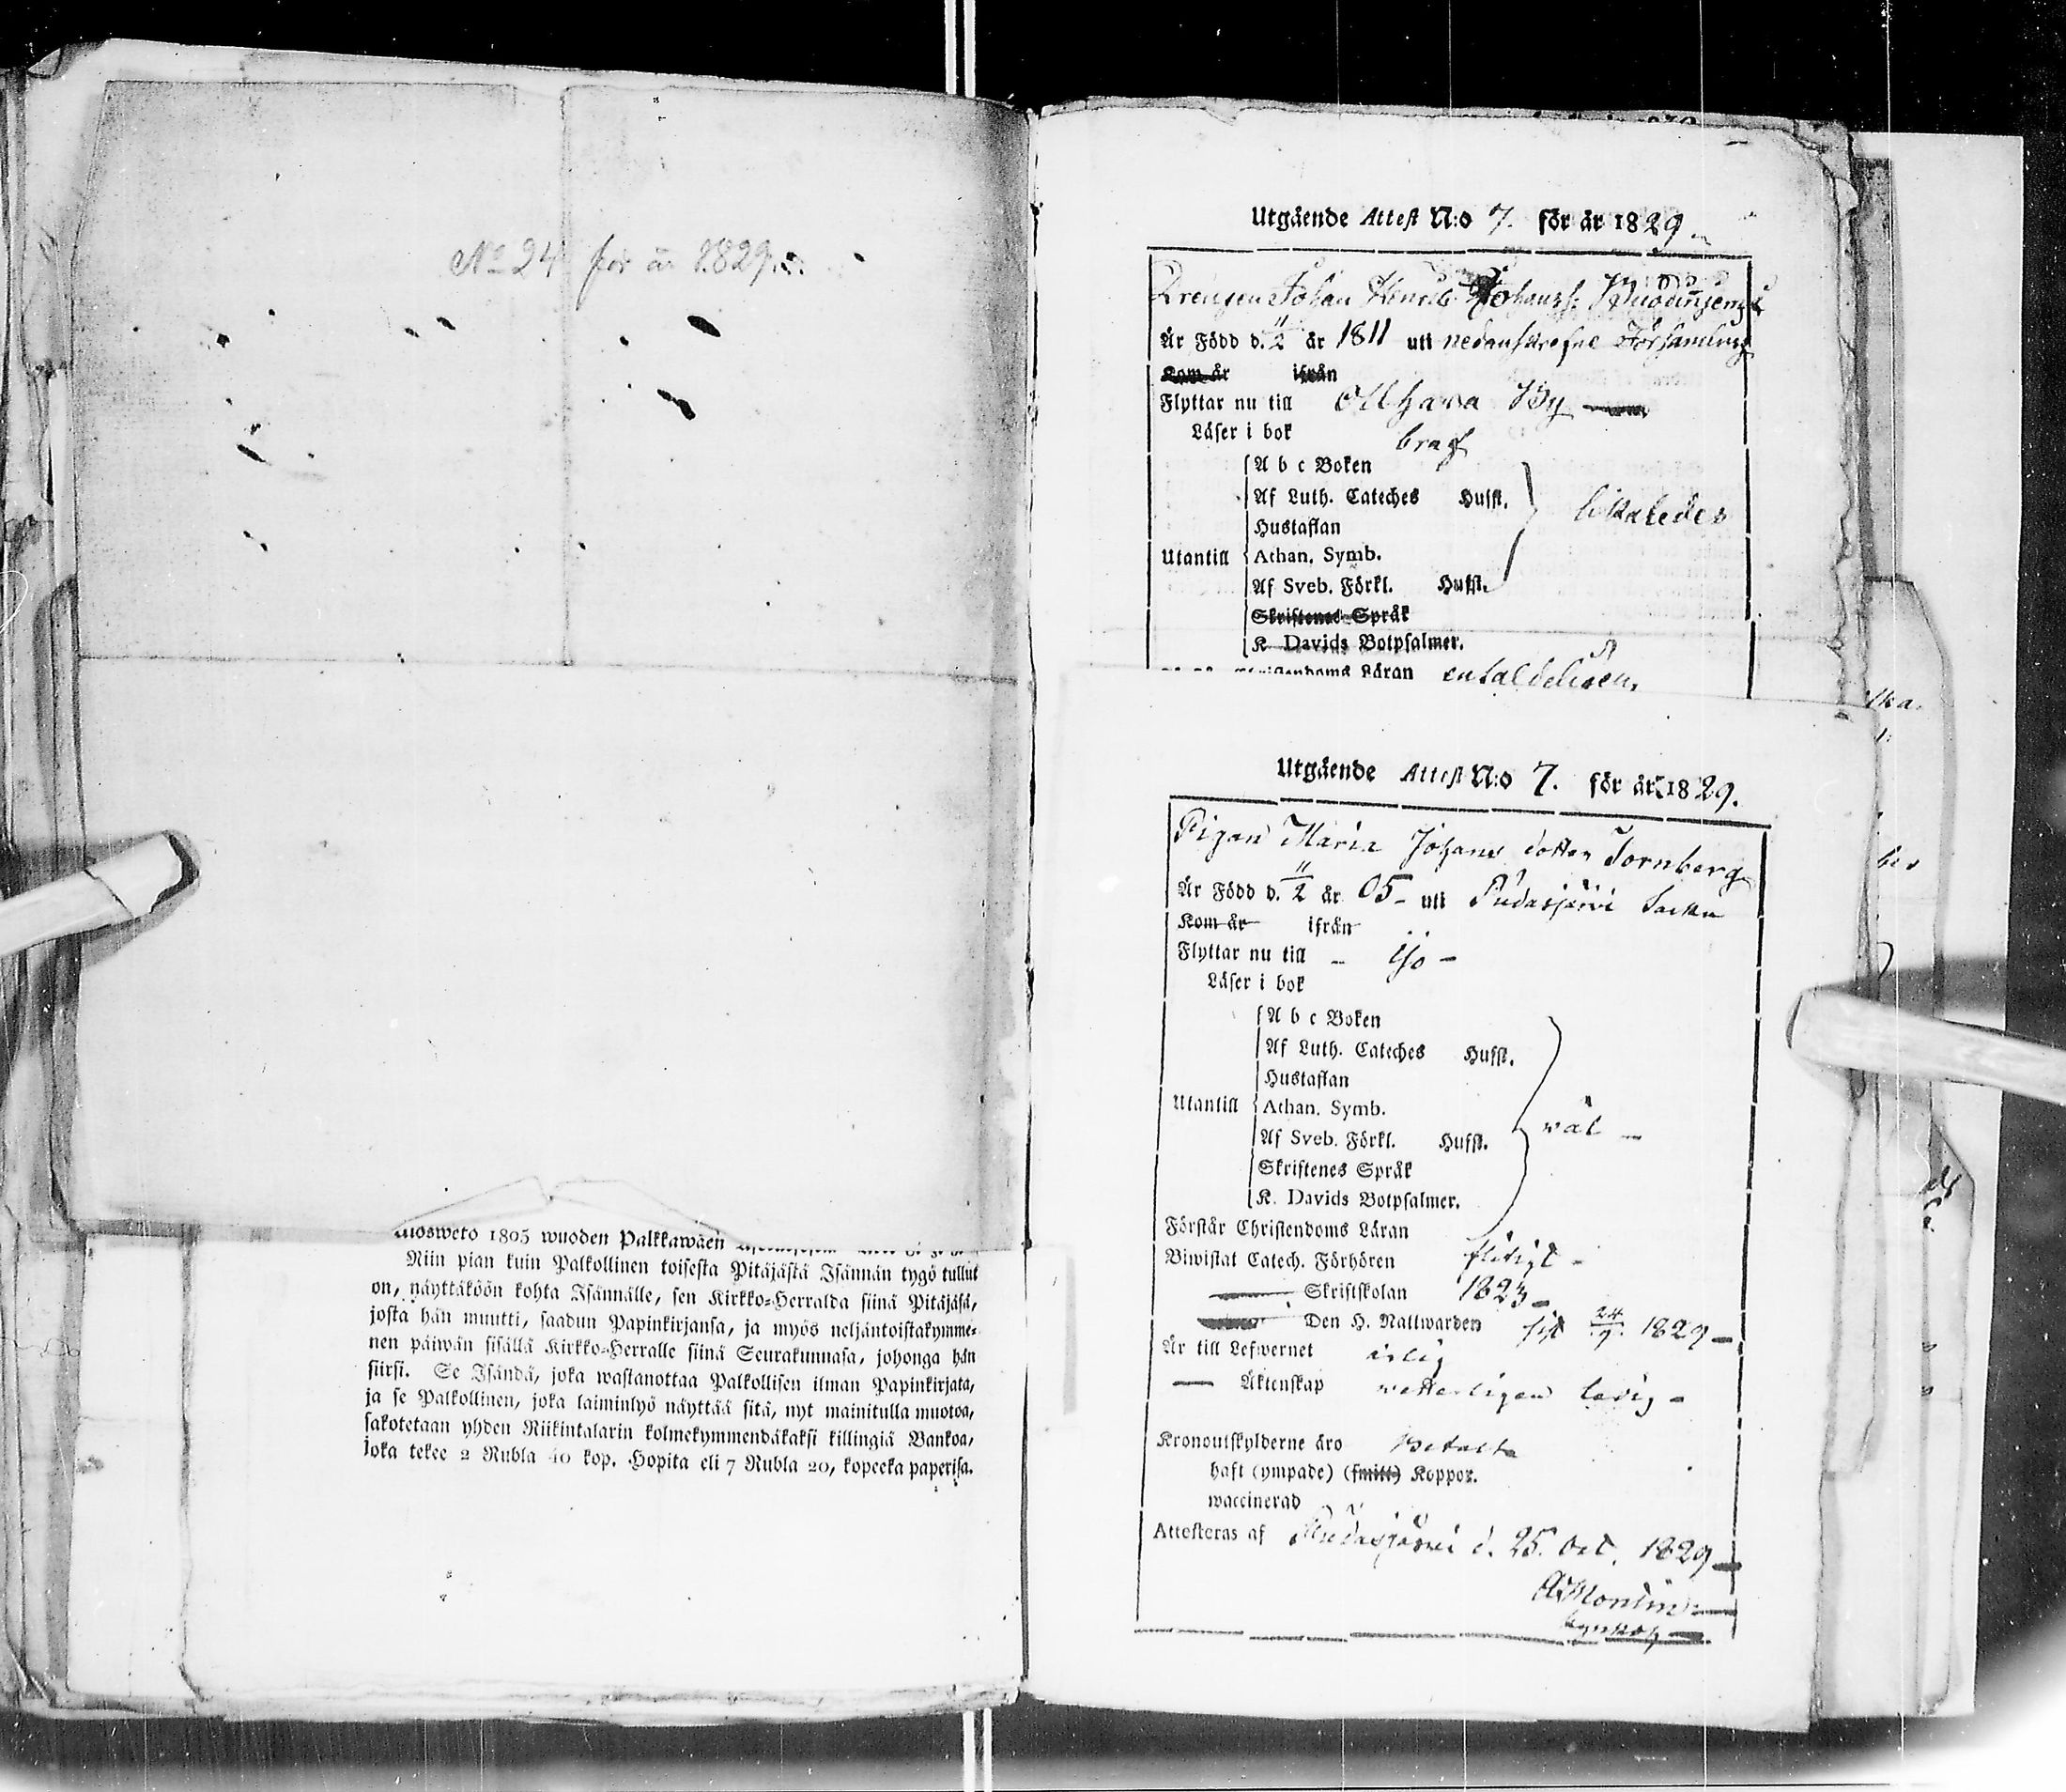 No 24 för år 1829.
1805 wuoden Palkkawäen
Niin pian kuin Palkollinen toisesta Pitäjästä Isännän tygö tullut
on, näyttäköön kohta Isännälle, sen Kirkko-Herralda siinä Pitäjäsä,
josta hän muutti, saadun Papinkirjansa, ja myös neljäntoistakymme-
nen päiwän sisällä Kirkko-Herralle siinä Seurakunnasa, johonga hän
siirsi. Se Isändä, joka wastanottaa Palkollisen ilman Papinkirjata,
ja se Palkollinen, joka laiminlyö näyttää sitä, nyt mainitulla muotoa,
sakotetaan yhden Riikintalarin kolmekymmendäkaksi killingiä Bankoa,
joka tekee 2 Rubla 40 kop. Hopita eli 7 Rubla 20, kopeeka paperisa.
Utgående Attest N:o 7. för år 1829.
Drengen Johan Henrik Johanss:
Är Född d. 11/2 år 1811 uti nedanskrefne Församling
Kom år ifrån
Flyttar nu till Ollhava By
Läser i bok braf
A b c Boken
Af Luth. Cateches Hufst.
Hustaflan
likaledes
Utantill Athan. Symb.
Af Sveb. Förkl. Hufst.
Skriftenes Språk
K. Davids Botpsalmer.
Läran enfaldeligen,
Utgående Attest N:o 7. för år 1829.
Pigan Maria Johans dotter Tornberg
Är Född d. 11/2 år 05 - uti Pudasjärvi Socken
Kom år ifrån
Flyttar nu till - Ijo -
Läser i bok
A b c Boken
Af Luth. Cateches Hufst.
Hustaflan
Utantill Athan. Symb. väl -
Af Sveb. Förkl. Hufst.
Skriftenes Språk
K. Davids Botpsalmer.
Förstår Christendoms Läran
Biwistat Catech. Förhören flitigt -
Skriftskolan 1823 -
Den H. Nattwarden sist 24/9 1829 -
Är till Lefwernet ärlig
Äktenskap vetterligen ledig -
Kronoutskylderne äro Betalte
haft (ympade) (smitt) Koppor.
waccinerad
Attesteras af Pudasjärvi d. 25. Oct. 1829
A. Montin